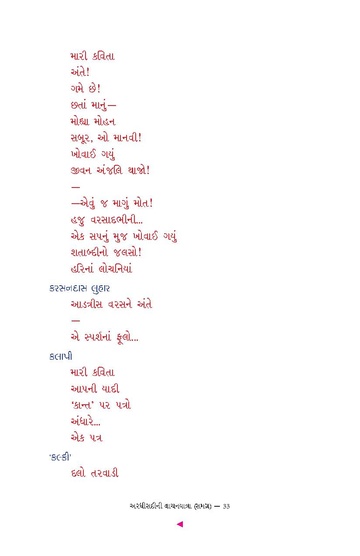 મારી કવિતા
અંતે!
ગમે છે!
છતાં માનું—
મોંઘા મોહન
સબૂર, ઓ માનવી!
ખોવાઈ ગયું
જીવન અંજલિ થાજો!
—
—એવું જ માગું મોત!
હજુ વરસાદભીની...
એક સપનું મુજ ખોવાઈ ગયું
શતાબ્દીનો જલસો!
હરિનાં લોચનિયાં
કરસનદાસ લુહાર
આડત્રીસ વરસને અંતે
—
એ સ્પર્શનાં ફૂલો...
કલાપી
મારી કવિતા
આપની યાદી
‘કાન્ત’ પર પત્રો
અંધારે...
એક પત્ર
‘કલ્કી’
દલો તરવાડી
અરધીસદીની વાચનયાત્રા (સમગ્ર) — 33